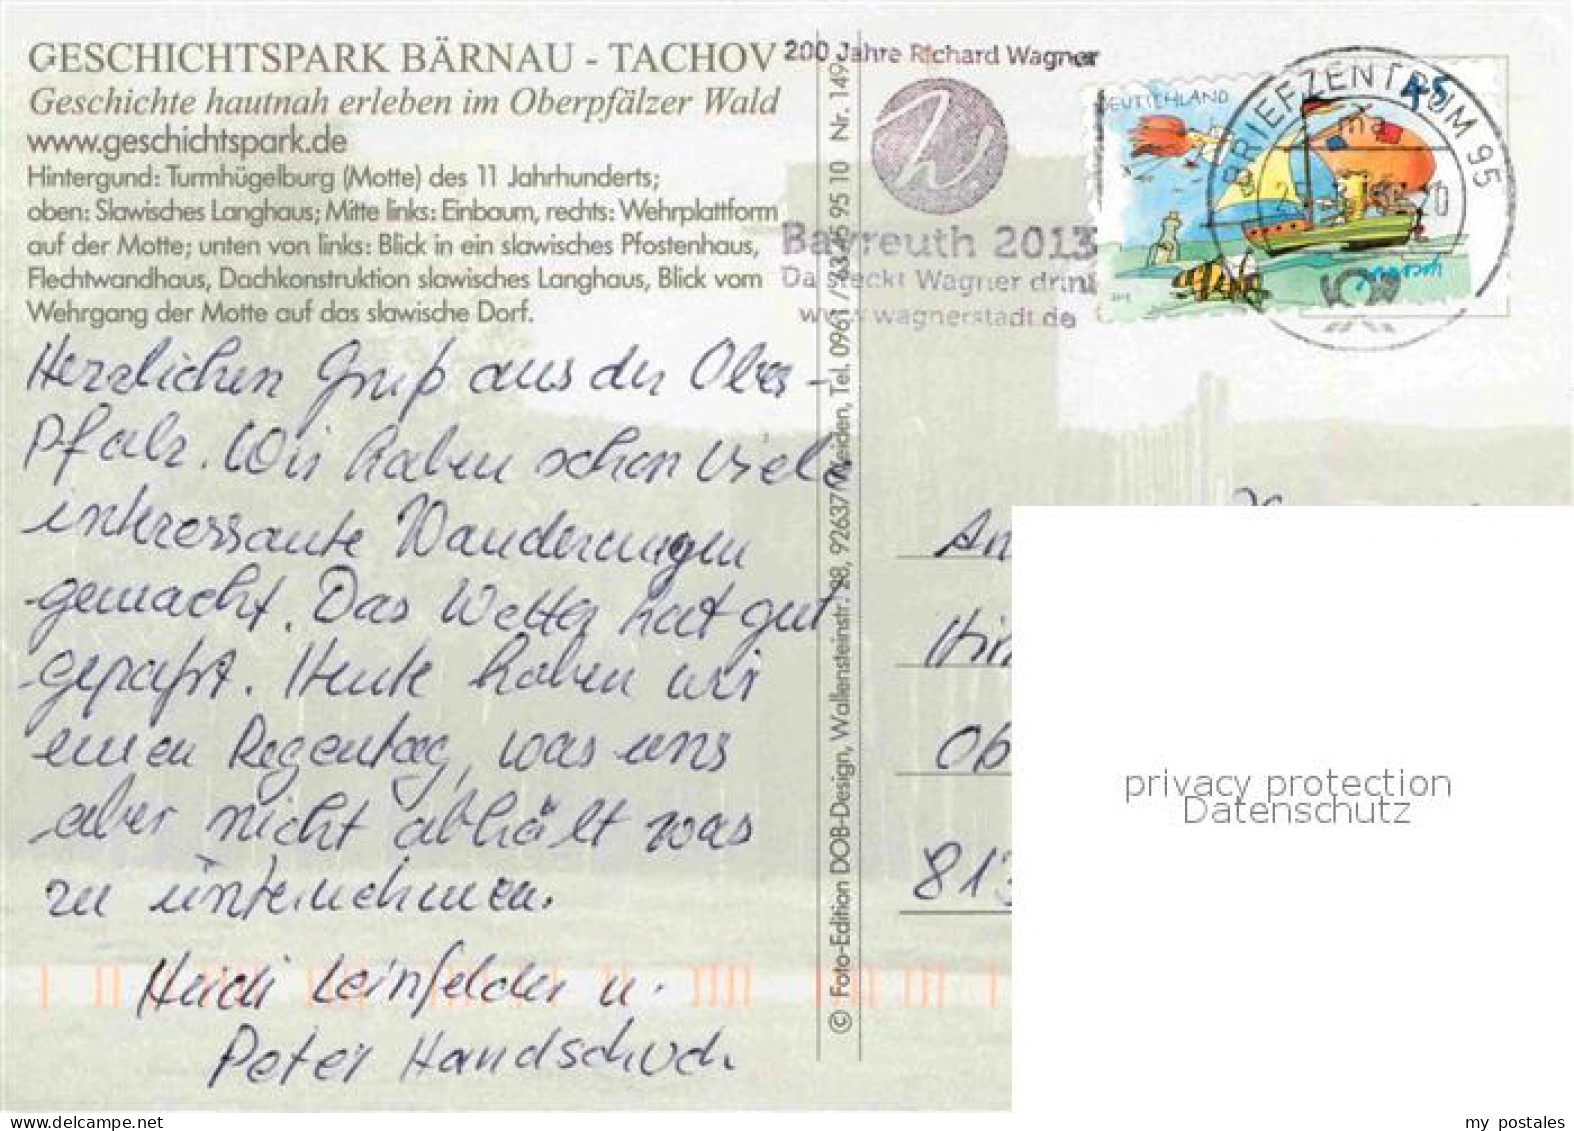 GESCHICHTSPARK BÄRNAU - TACHOV
Geschichte hautnah erleben im Oberpfälzer Wald
www.geschichtspark.de
Hintergund: Turmhügelburg (Motte) des 11 Jahrhunderts;
oben: Slawisches Langhaus; Mitte links: Einbaum, rechts: Wehrplattform
auf der Motte; unten von links: Blick in ein slawisches Pfostenhaus,
Flechtwandhaus, Dachkonstruktion slawisches Langhaus, Blick vom
Wehrgang der Motte auf das slawische Dorf.
Herzlichen Gruß aus der Ober-
pfalz. Wir haben schon viele
interessante Wanderungen
gemacht. Das Wetter hat gut
gepaßt. Heute haben wir
einen Regentag, was uns
aber nicht abhält was
zu unternehmen.
Heidi Leinfelder u.
Peter Handschuch
© Foto-Edition DOB-Design, Wallensteinstr. 28, 92637 Weiden, Tel. 0961 / 95 10 Nr. 149
200 Jahre Richard Wagner
W.
Bayreuth 2013
Da steckt Wagner drin!
www.wagnerstadt.de
DEUTSCHLAND
45
janosch
BRIEFZENTRUM 95
An
Ob
813
privacy protection
Datenschutz
www.delcampe.net
my_postales